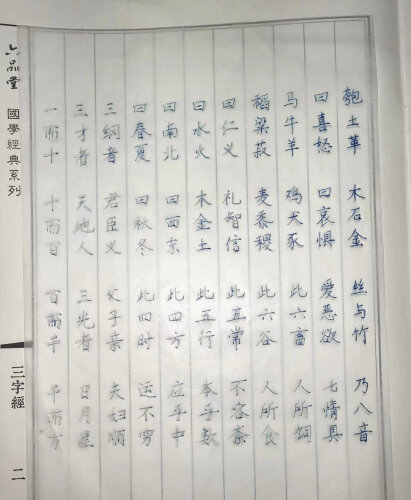 六品堂
國學經典系列
三字經
二
一而十 十而百 百而千 千而万
三才者 天地人 三光者 日月星
三纲者 君臣义 父子亲 夫妇顺
曰春夏 曰秋冬 此四时 运不穷
曰南北 曰西东 此四方 应乎中
曰水火 木金土 此五行 本乎数
曰仁义 礼智信 此五常 不容紊
稻粱菽 麦黍稷 此六谷 人所食
马牛羊 鸡犬豕 此六畜 人所饲
曰喜怒 曰哀惧 爱恶欲 七情具
匏土革 木石金 丝与竹 乃八音